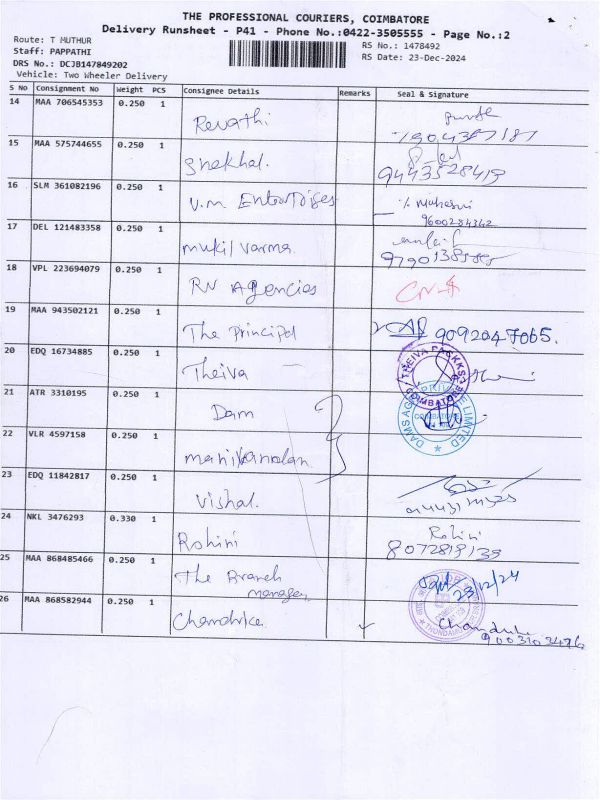 THE PROFESSIONAL COURIERS, COIMBATORE
Delivery Runsheet - P41 - Phone No.:0422-3505555 - Page No.:2
Route: T MUTHUR
RS No.: 1478492
Staff: PAPPATHI
RS Date: 23-Dec-2024
DRS No.: DCJB147849202
Vehicle: Two Wheeler Delivery
S No Consignment No Weight PCS Consignee Details Remarks Seal & Signature
14 MAA 706545353 0.250 1
Revathi
15 MAA 575744655 0.250 1
Shekhal.
9443528419
16 SLM 361082196 0.250 1
V.M Enterprises
9600284342
17 DEL 121483358 0.250 1
Mukil Varma
18 VPL 223694079 0.250 1
RN Agencies
19 MAA 943502121 0.250 1
The Principal
9092047065.
20 EDQ 16734885 0.250 1
Theiva
THEIVA PACKKS
COIMBATORE
21 ATR 3310195 0.250 1
Dam
DAMS PRIVATE LIMITED
22 VLR 4597158 0.250 1
Manikandan
23 EDQ 11842817 0.250 1
Vishal.
24 NKL 3476293 0.330 1
Rohini
Rohini
8072819139
25 MAA 868485466 0.250 1
The Branch
manager
23/12/24
26 MAA 868582944 0.250 1
Chandrika
9003103476